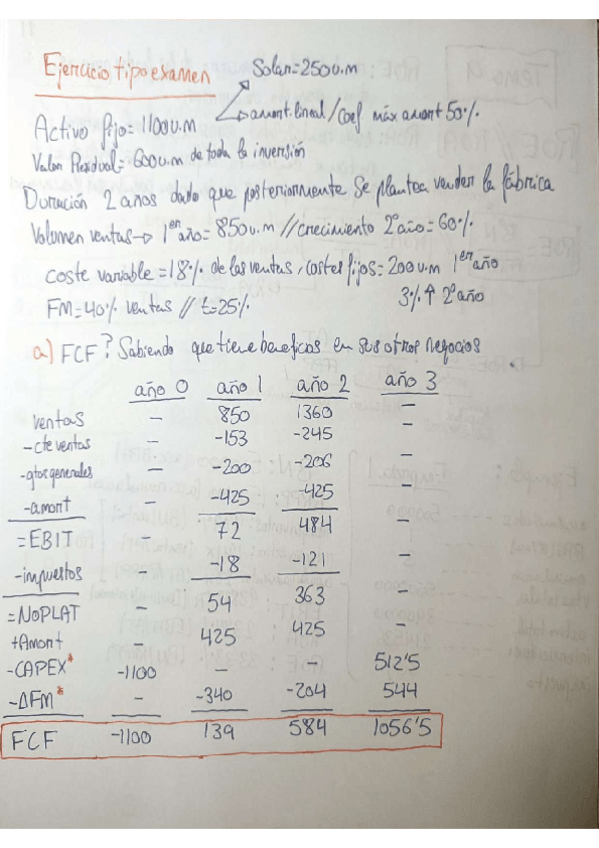 Ejercicio tipo examen
Solar = 250 u.m
Activo fijo = 1100 u.m
amort. lineal / Coef máx amort 50%
Valor Residual = 600 u.m de toda la inversión
Duración 2 años dado que posteriormente se plantea vender la fábrica
Volumen ventas → 1er año = 850 u.m // crecimiento 2º año = 60%
coste variable = 18% de las ventas, costes fijos = 200 u.m 1er año
FM = 40% ventas // t = 25%
3% ↑ 2º año
a) FCF? Sabiendo que tiene beneficios en sus otros negocios
año 0 año 1 año 2 año 3
ventas – 850 1360 –
- cte ventas – -153 -245 –
- gtos generales – -200 -206 –
- amort – -425 -425 –
= EBIT – 72 484 –
- impuestos -18 -121 –
= NOPLAT – 54 363 –
+ Amort – 425 425 –
- CAPEX* -1100 – – 512'5
- ΔFM* – -340 -204 544
FCF -1100 139 584 1056'5